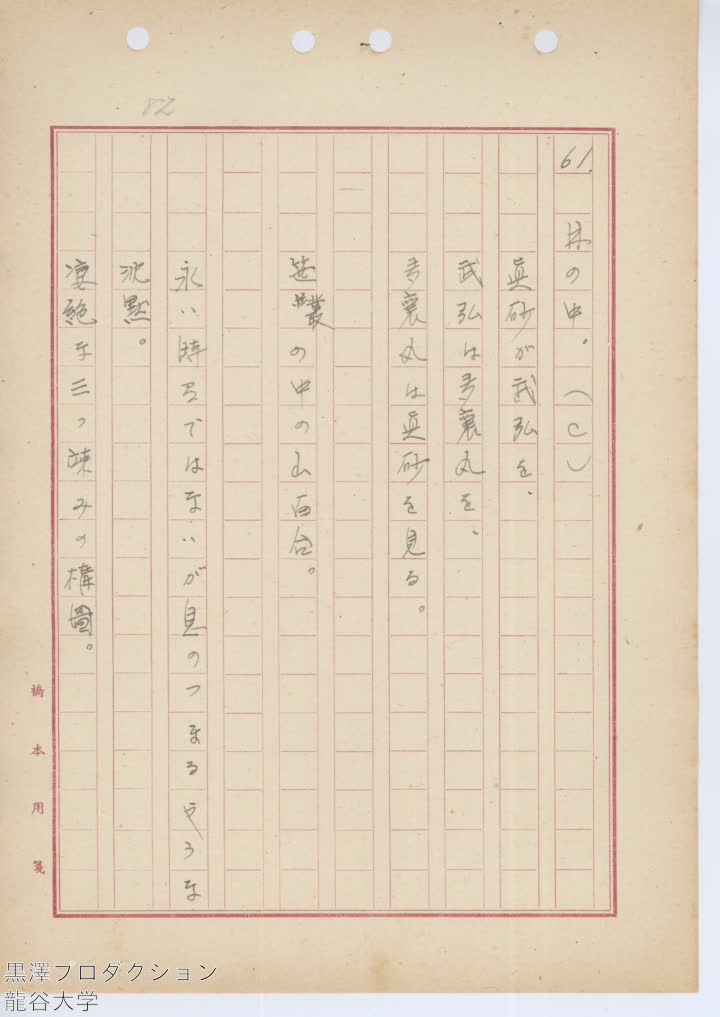 82
61. 林の中。(C)
真砂が武弘を、
武弘は多襄丸を、
多襄丸は真砂を見る。
笹叢の中の山百合。
永い時間ではないが息のつまるやうな
沈黙。
凄絶な三つ竦みの構圖。
橋本用箋
黒澤プロダクション
龍谷大学